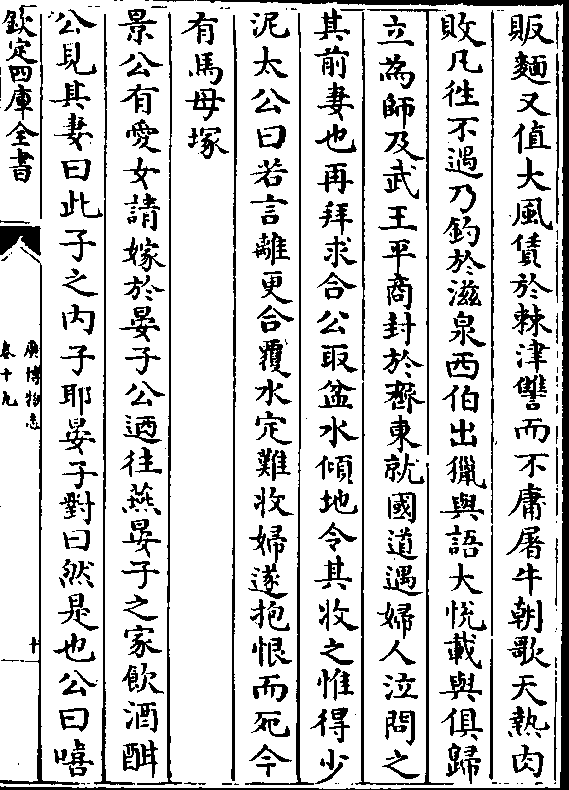 販麵又值大風賃於棘津讐而不庸屠牛朝歌天熱肉
敗凡徃不遇乃釣於滋泉西伯出獵與語大悅載與俱歸
立為師及武王平商封於齊東就國道遇婦人泣問之
其前妻也再拜求合公取盆水傾地令其收之惟得少
泥太公曰若言離更合覆水定難收婦遂抱恨而死今
有馬母塚
景公有愛女請嫁於晏子公迺往燕晏子之家飲酒酣
公見其妻曰此子之內子耶晏子對曰然是也公曰嘻
欽定四庫全書
廣博物志
卷十九
十